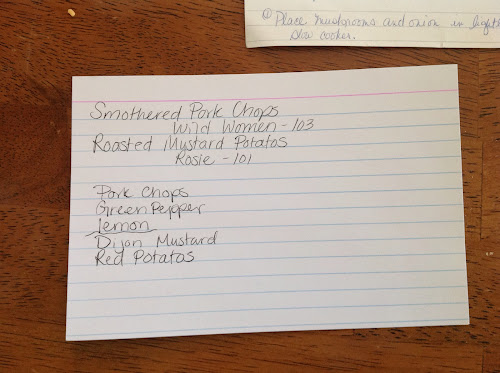 ① Place mushrooms and onion in light
slow cooker.
Smothered Pork Chops
Wild Women - 103
Roasted Mustard Potatos
Rosie - 101
Pork Chops
Green Pepper
lemon
Dijon Mustard
Red Potatos